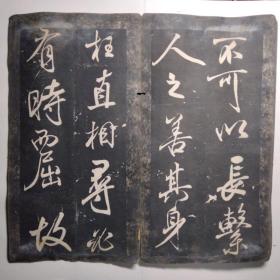 不可以長繫
人之善其身
枉直相尋
有時屈故